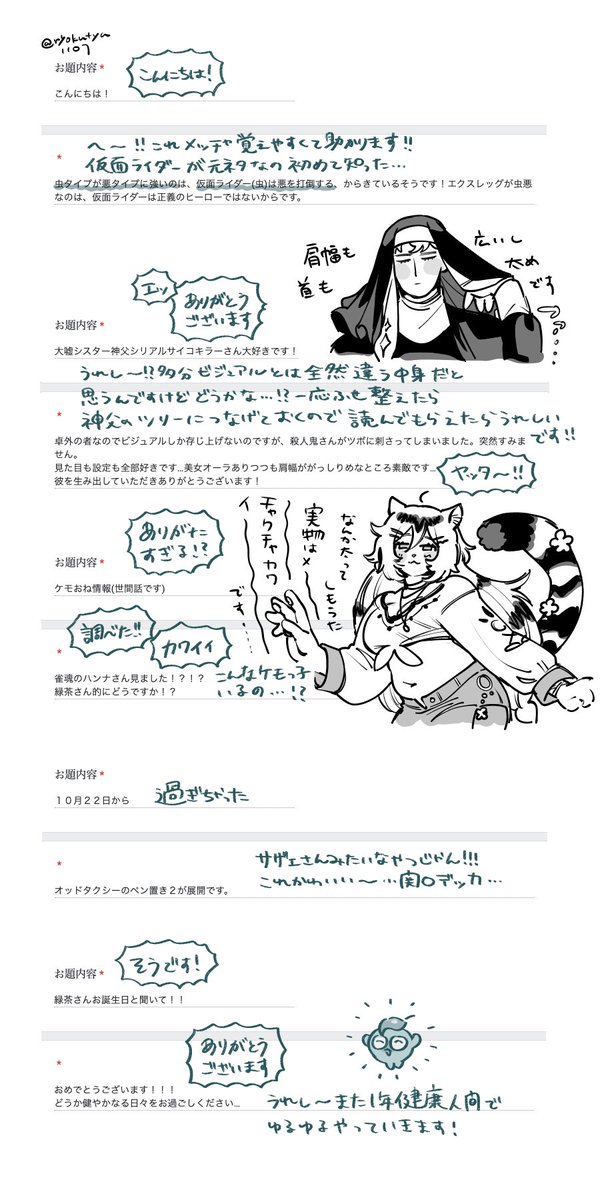 @ryokutya
1107
お題内容 *
こんにちは!
こんにちは!
へ〜!!これメッチャ覚えやすくて助かります!!
仮面ライダーが元ネタなの初めて知った…
*
虫タイプが悪タイプに強いのは、仮面ライダー(虫)は悪を打倒する、からきているそうです!エクスレッグが虫悪
なのは、仮面ライダーは正義のヒーローではないからです。
肩幅も
首も
広いし
太め
です
エッ
ありがとう
ございます
お題内容 *
大嘘シスター神父シリアルサイコキラーさん大好きです!
うれし〜!?多分ビジュアルとは全然違う中身だと
思うんですけどどうかな…!?一応ふせ整えたら
神父のツリーにつなげておくので読んでもらえたらうれしい
です!!
*
卓外の者なのでビジュアルしか存じ上げないのですが、殺人鬼さんがツボに刺さってしまいました。突然すみま
せん。
見た目も設定も全部好きです…美女オーラありつつも肩幅ががっしりめなところ素敵です…
彼を生み出していただきありがとうございます!
ヤッタ〜!!
ありがた
すぎる!?
お題内容 *
ケモおね情報(世間話です)
なんかたって
しもうた
実物はメ
チャクチャカワ
イ
です…
調べた!!
カワイイ
*
雀魂のハンナさん見ました!?!?
緑茶さん的にどうですか!?
こんなケモっ子
いるの…!?
お題内容 *
10月22日から
過ぎちゃった
*
サザエさんみたいなやつじゃん!!!
これかわいい〜…関口デッカ…
オッドタクシーのペン置き2が展開です。
そうです!
お題内容 *
緑茶さんお誕生日と聞いて!!
ありがとう
ございます
*
おめでとうございます!!!
どうか健やかなる日々をお過ごしください…
うれし〜また1年健康人間で
ゆるゆるやっていきます!